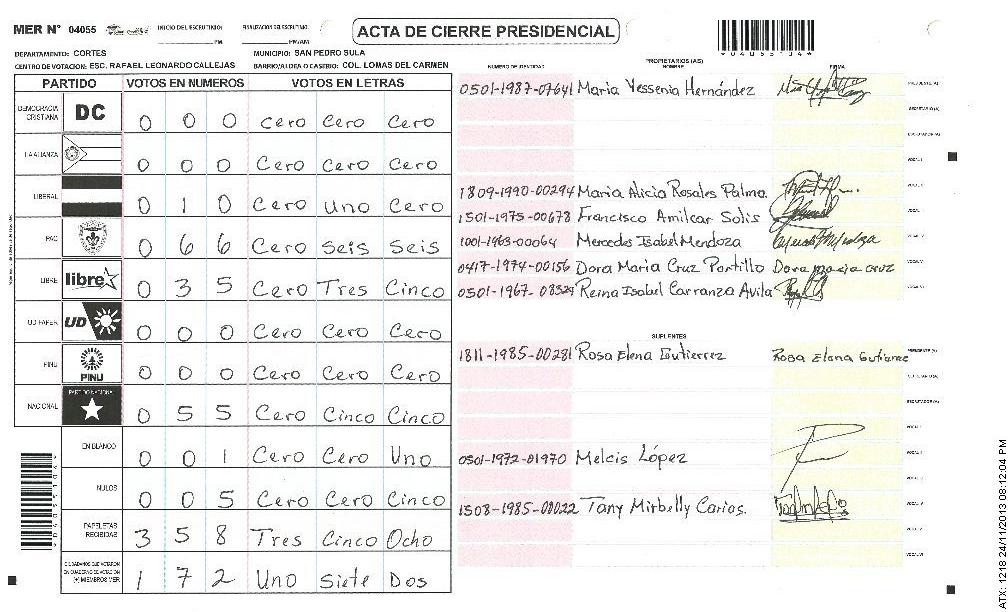 MER N° 04055 INICIO DEL ESCRUTINIO: PM FINALIZACION DEL ESCRUTINIO: PM/AM
ACTA DE CIERRE PRESIDENCIAL
DEPARTAMENTO: CORTES MUNICIPIO: SAN PEDRO SULA
CENTRO DE VOTACION: ESC. RAFAEL LEONARDO CALLEJAS BARRIO/ALDEA O CASERIO: COL. LOMAS DEL CARMEN
PARTIDO VOTOS EN NUMEROS VOTOS EN LETRAS
DEMOCRACIA CRISTIANA DC 0 0 0 Cero Cero Cero
LA ALIANZA 0 0 0 Cero Cero Cero
LIBERAL 0 1 0 Cero Uno Cero
PAC 0 6 6 Cero Seis Seis
LIBRE libre 0 3 5 Cero Tres Cinco
UD FAPER UD 0 0 0 Cero Cero Cero
PINU PINU 0 0 0 Cero Cero Cero
NACIONAL PARTIDO NACIONAL 0 5 5 Cero Cinco Cinco
EN BLANCO 0 0 1 Cero Cero Uno
NULOS 0 0 5 Cero Cero Cinco
PAPELETAS RECIBIDAS 3 5 8 Tres Cinco Ocho
CIUDADANOS QUE VOTARON EN CUADERNO DE VOTACION (+) MIEMBROS MER 1 7 2 Uno Siete Dos
PROPIETARIOS (AS)
NUMERO DE IDENTIDAD NOMBRE FIRMA
0501-1987-07641 Maria Yessenia Hernández
1809-1990-00294 Maria Alicia Rosales Palma.
1501-1975-00678 Francisco Amilcar Solis
1001-1963-00064 Mercedes Isabel Mendoza
0417-1974-00156 Dora Maria Cruz Portillo Dora maria cruz
0501-1967-08324 Reina Isabel Carranza Avila
SUPLENTES
1811-1985-00281 Rosa Elena Gutierrez Rosa Elena Gutierrez
0501-1972-01970 Melcis López
1508-1985-00022 Tany Mirbelly Carias.
ATX: 1218 24/11/2013 08:12:04 PM